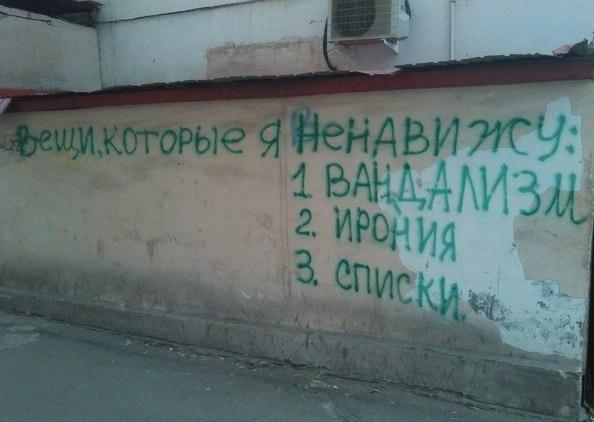 Вещи, которые я ненавижу:
1 ВАНДАЛИЗМ
2. ИРОНИЯ
3. СПИСКИ.